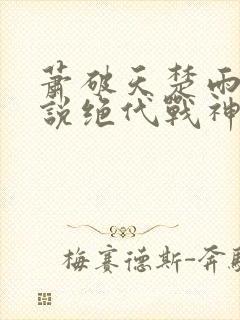 萧破天楚雨
说绝代战神
梅赛德斯-奔驰